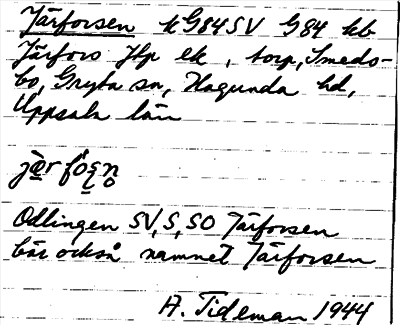 Järforsen kG84SV G84 kb
Järfors Jhp ek, torp, Smeds-
bo, Gryta sn, Hagunda hd,
Uppsala län
Odlingen SV, S, SO Järforsen
bär också namnet Järforsen
A. Tideman 1944